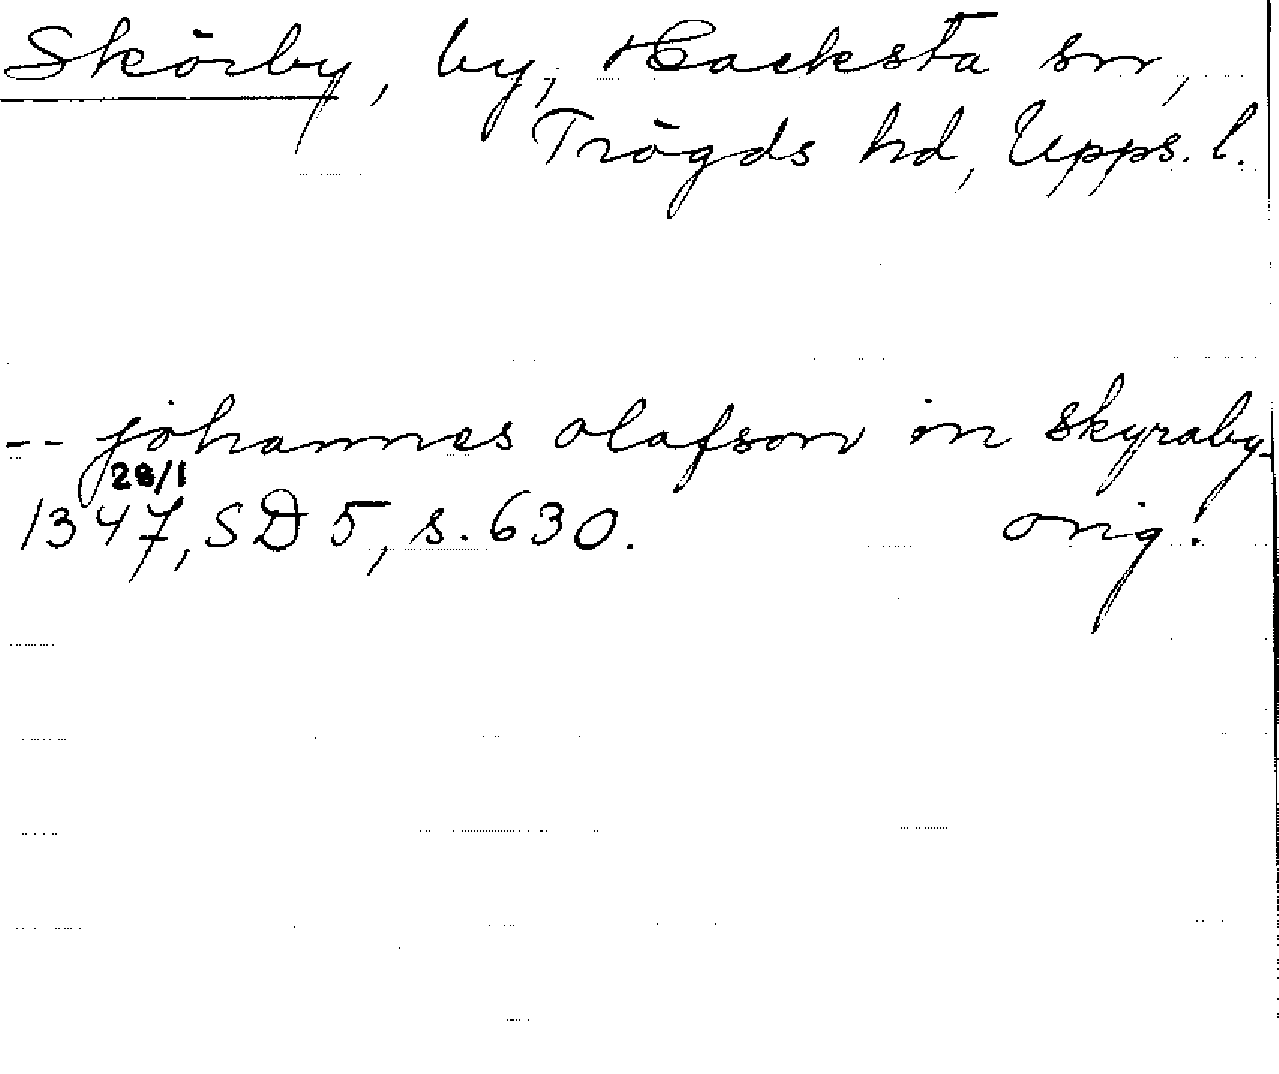 Skörby, by, Hacksta sn,
Trögds hd, Upps. l.
-- johannes olafson in skyraby-
28/1
1347, SD 5, s. 630. orig.